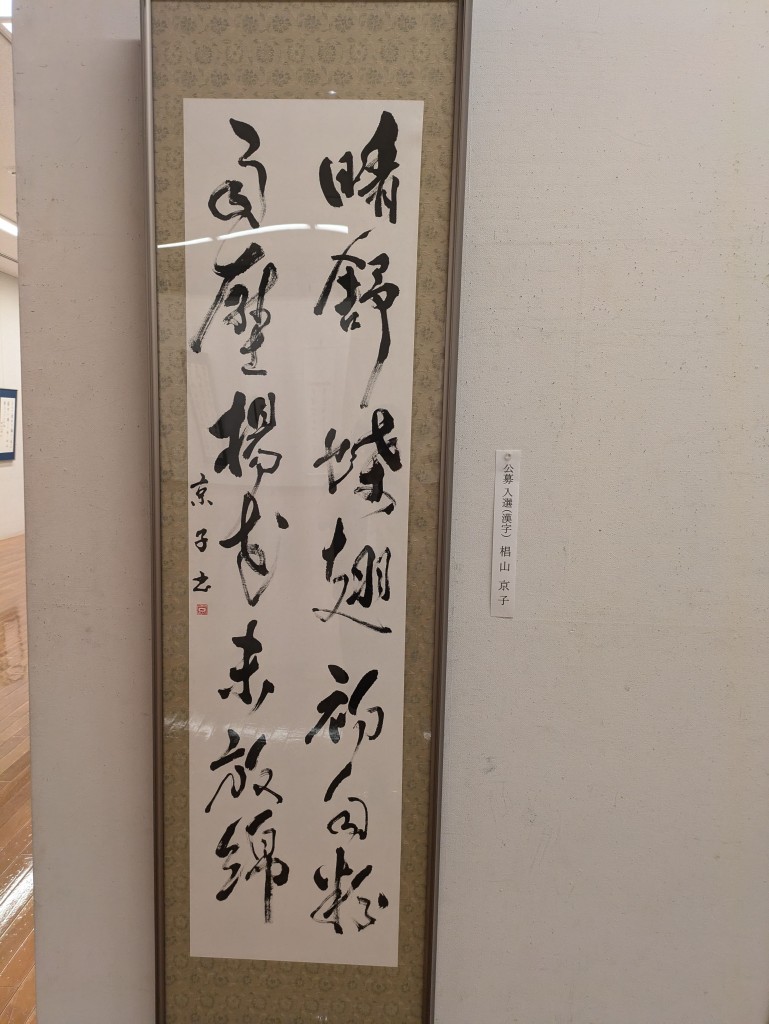 晴舒蝶翅初匀粉
雨壓楊花未放綿
京子書
公募 入選(漢字) 椙山 京子